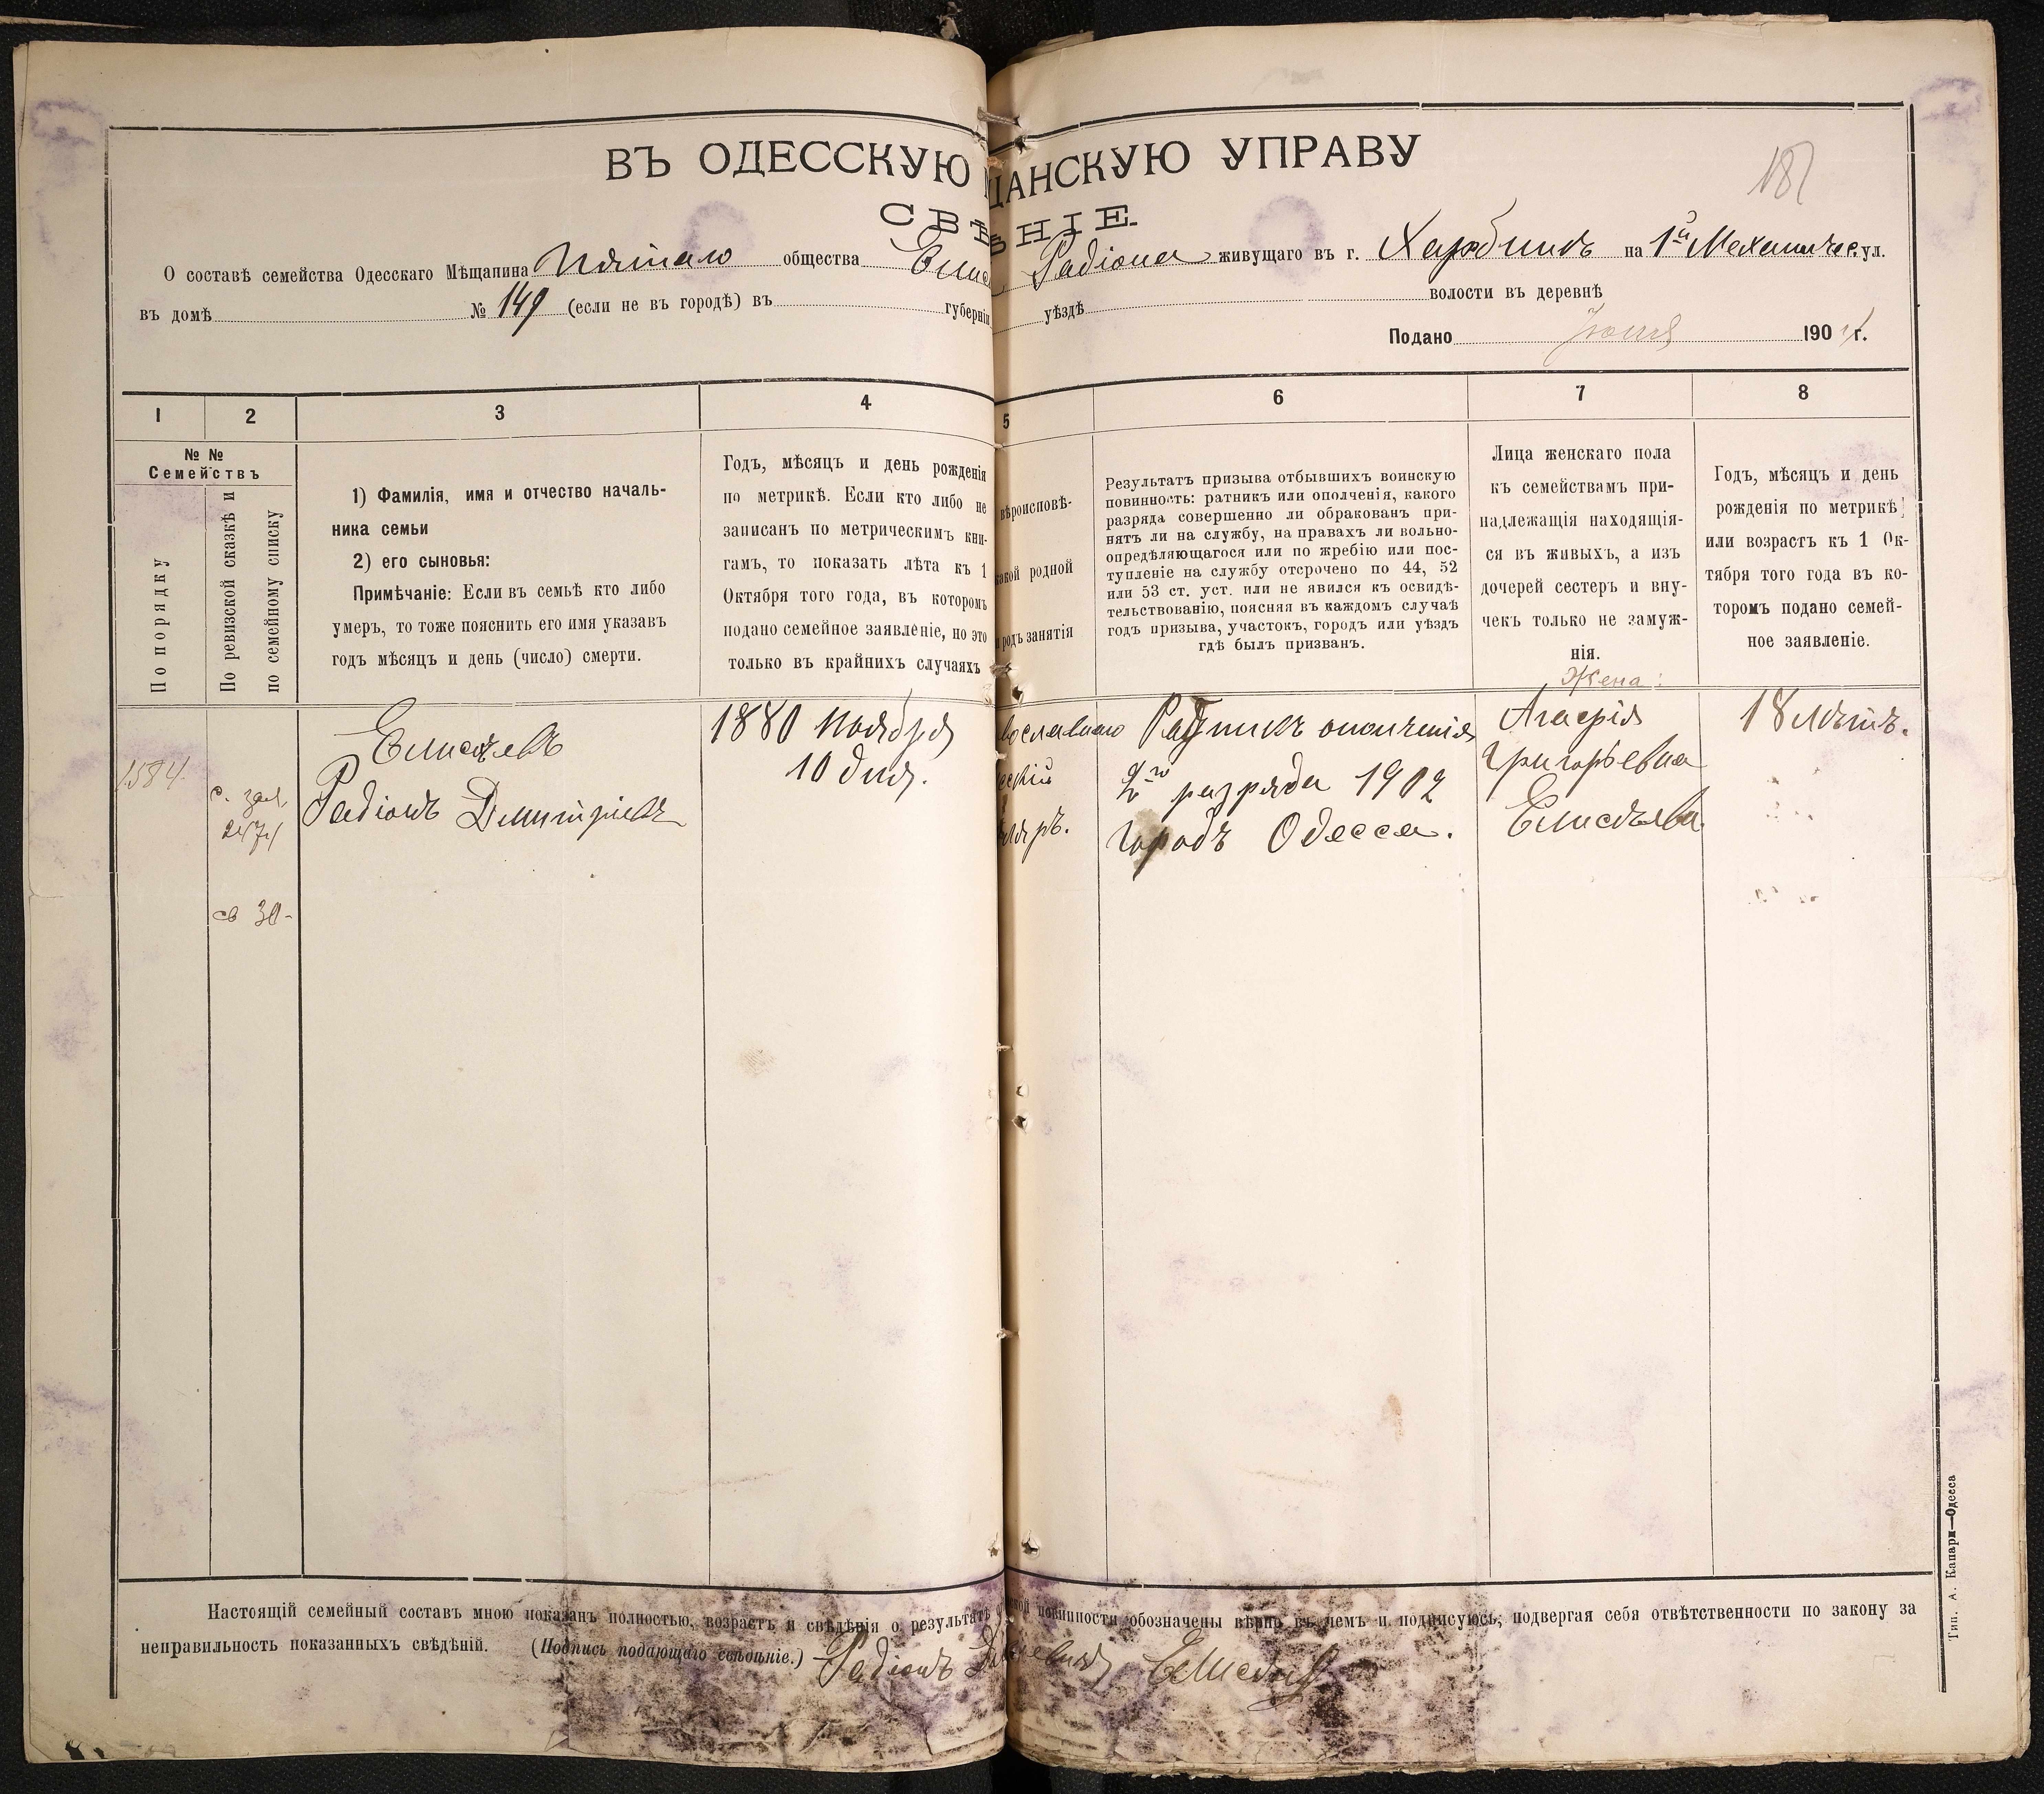 ВЪ ОДЕССКУЮ ЩАНСКУЮ УПРАВУ
СВѢ ѢНІЕ.
О составѣ семейства Одесскаго Мѣщанина Пятаго общества Елис Радіона живущаго въ г. Харбинъ на 1й Механичес. ул.
въ домѣ № 149 (если не въ городѣ) въ губерніи уѣздѣ волости въ деревнѣ
Подано 190 г.
1 2 3 4 5 6 7 8
№ №
Семействъ
По порядку
По ревизской сказкѣ и
по семейному списку
1) Фамилія, имя и отчество началь-
ника семьи
2) его сыновья:
Примѣчаніе: Если въ семьѣ кто либо
умеръ, то тоже пояснить его имя указавъ
годъ мѣсяцъ и день (число) смерти.
Годъ, мѣсяцъ и день рожденія
по метрикѣ. Если кто либо не
записанъ по метрическимъ кни-
гамъ, то показать лѣта къ 1
Октября того года, въ которомъ
подано семейное заявленіе, но это
только въ крайнихъ случаяхъ
вѣроисповѣ-
какой родной
и родъ занятія
Результатъ призыва отбывшихъ воинскую
повинность: ратникъ или ополченія, какого
разряда совершенно ли обракованъ при-
нятъ ли на службу, на правахъ ли вольно-
опредѣляющагося или по жребію или пос-
тупленіе на службу отсрочено по 44, 52
или 53 ст. уст. или не явился къ освидѣ-
тельствованію, поясняя въ каждомъ случаѣ
годъ призыва, участокъ, городъ или уѣздъ
гдѣ былъ призванъ.
Лица женскаго пола
къ семействамъ при-
надлежащія находящія-
ся въ живыхъ, а изъ
дочерей сестеръ и вну-
чекъ только не замуж-
нія.
Годъ, мѣсяцъ и день
рожденія по метрикѣ
или возрастъ къ 1 Ок-
тября того года въ ко-
торомъ подано семей-
ное заявленіе.
Жена:
1584
Елисѣевъ
Радіонъ Дмитріевъ
св 30-
1880 ноября
10 дня.
вославнаго
сскій
ляръ.
Ратникъ ополченія
2го разряда 1902
городъ Одесса.
Агафія
Григорьевна
Елисѣева
18 лѣтъ.
Настоящій семейный составъ мною показанъ полностью, возрастъ и свѣдѣнія о результатѣ ской повинности обозначены вѣрно въ чемъ и подписуюсь, подвергая себя отвѣтственности по закону за
неправильность показанныхъ свѣдѣній. (Подпись подающаго свѣдѣніе.) Радіонъ
Тип. А. Капари—Одесса